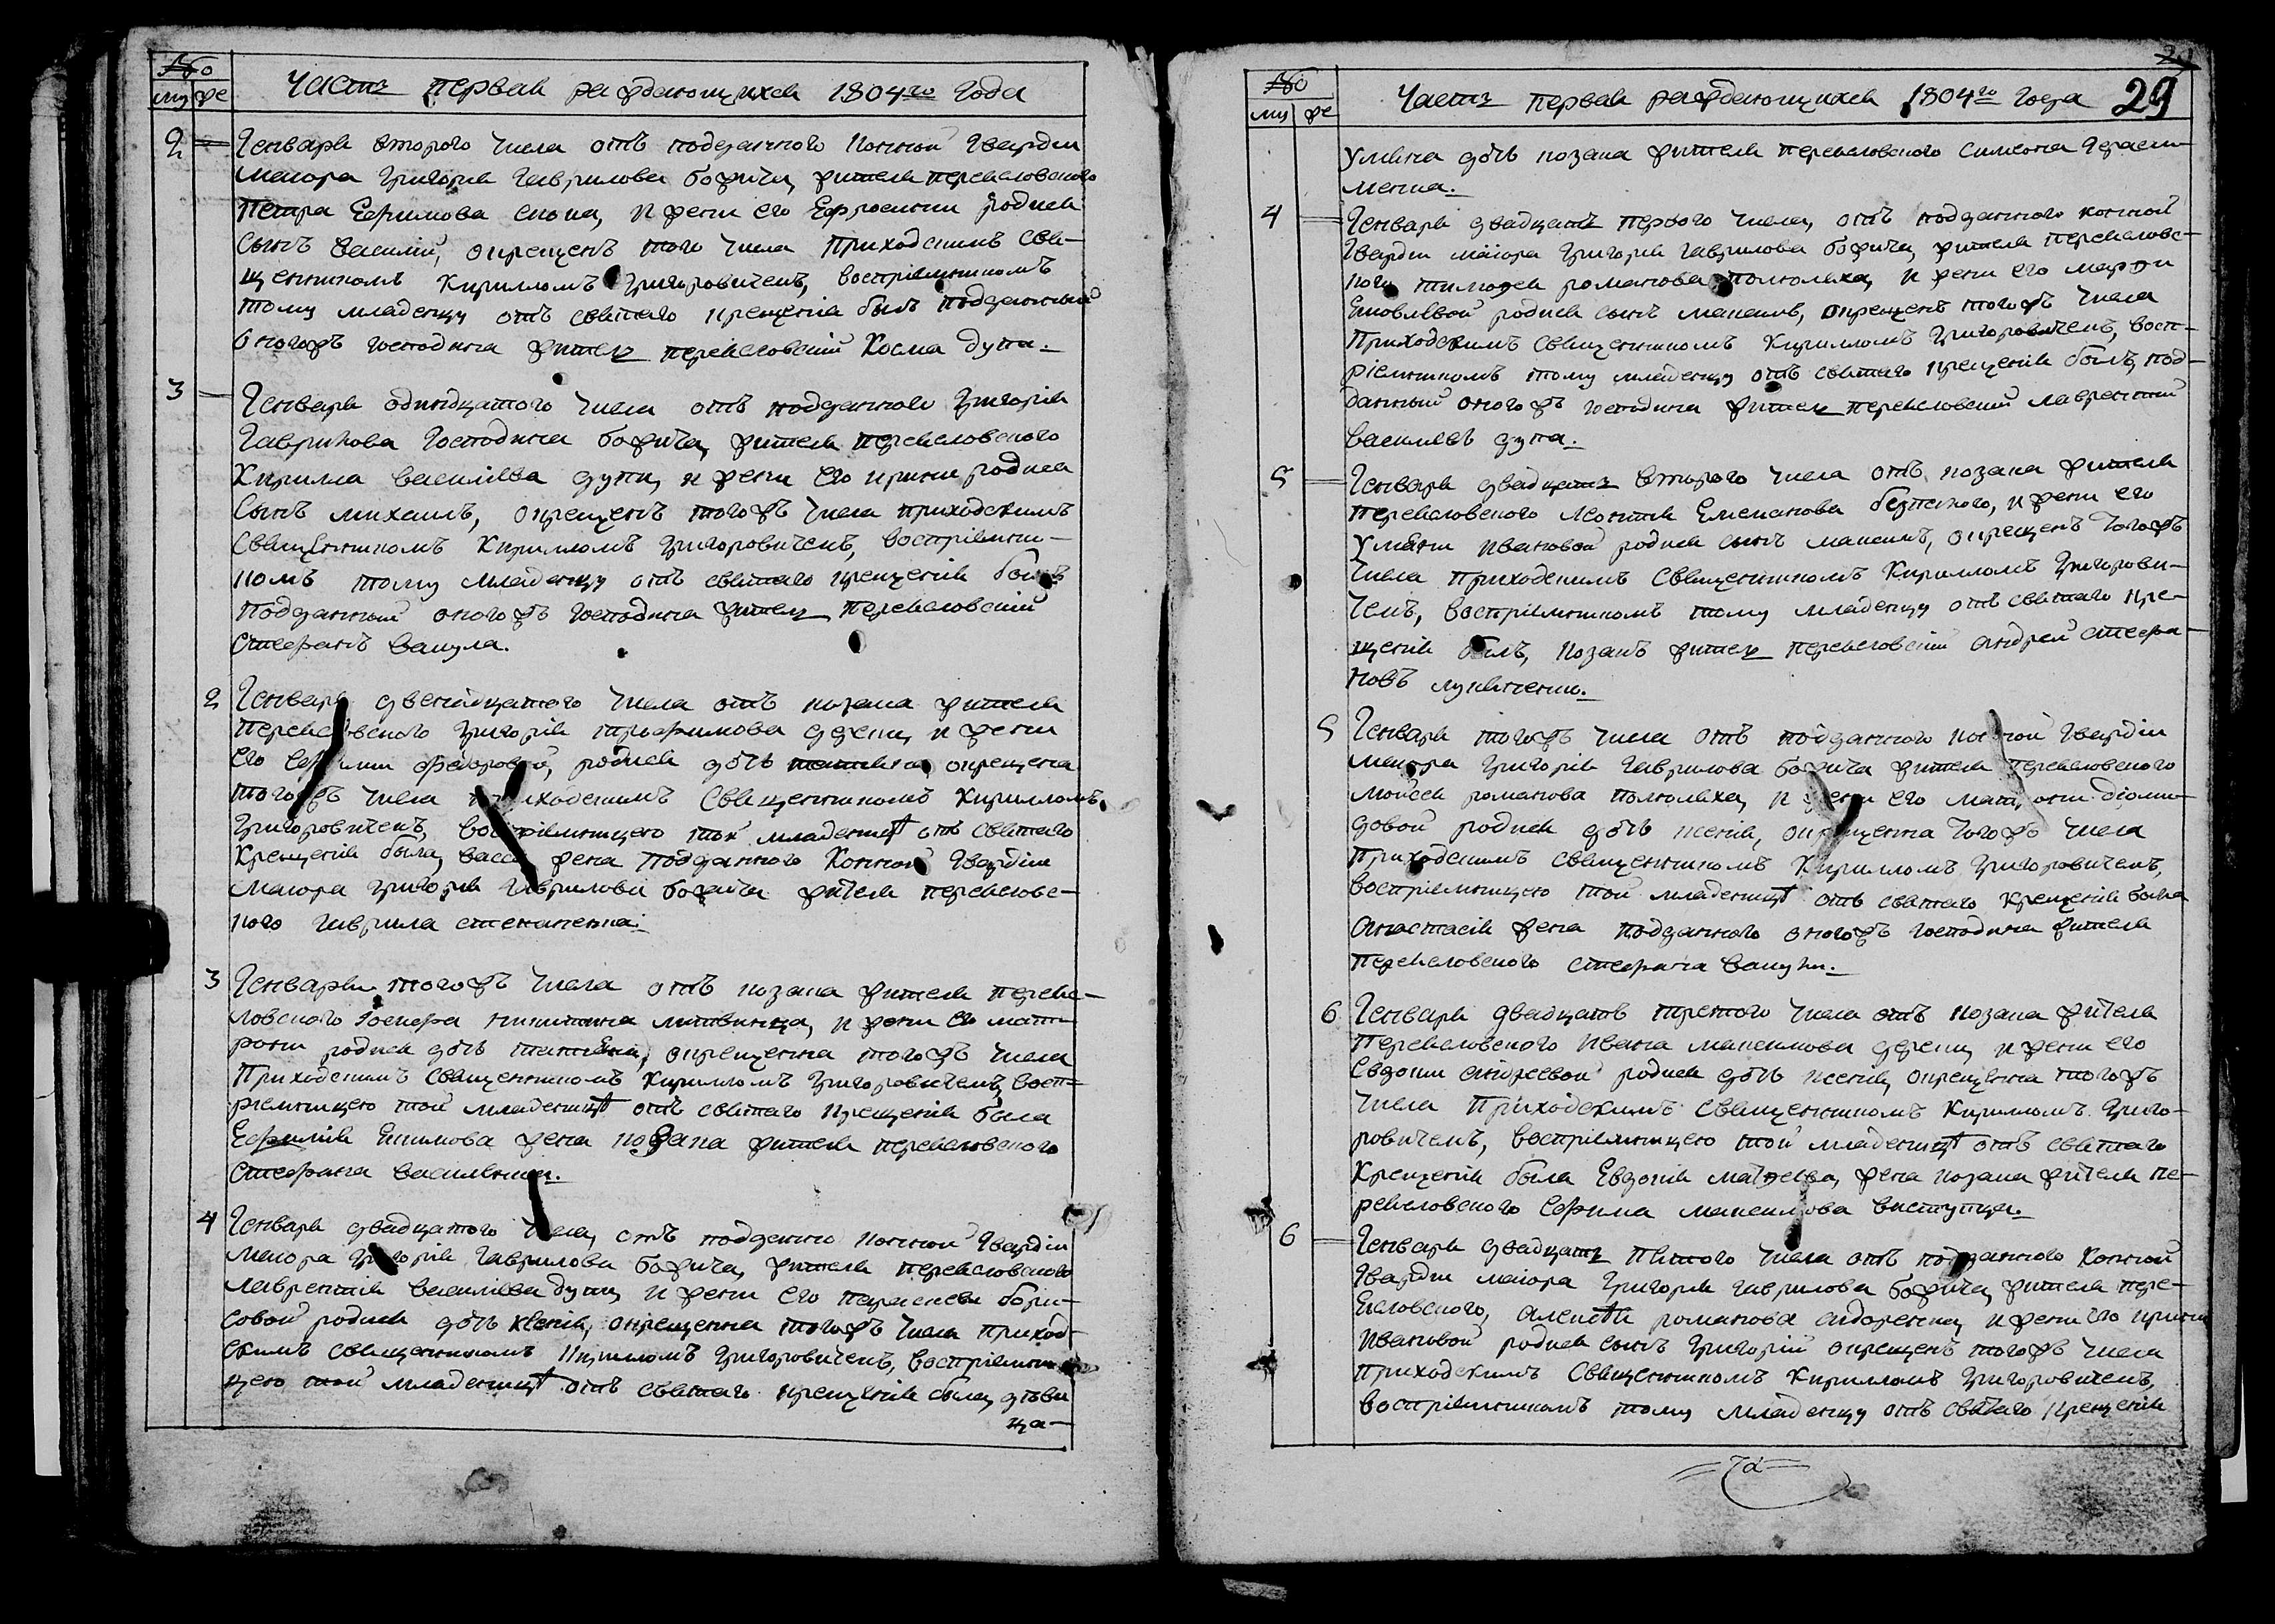 №
му же Часть первая раждающихся 1804го Года
2 Генваря второго числа отъ подданного конной Гвардіи
маіора Григорія Гаврилова божича, жителя переясловского
Петра Ефимова, и жени его Ефросиніи родися
сынъ василій, окрещенъ того числа приходскимъ свя-
щенникомъ Кирилломъ Григоровичемъ, воспріемникомъ
тому младенцу отъ святаго крещенія былъ подданный
оногожъ господина житель переясловскій Косма дупа.
3 Генваря одинадцатого числа отъ подданного Григорія
Гаврилова Господина божича, жителя переясловского
Кирилла василіева дупи, и жени его ирини родися
сынъ михаилъ, окрещенъ тогожъ числа приходскимъ
священникомъ Кирилломъ Григоровичемъ, воспріемни-
комъ тому младенцу отъ святаго крещенія былъ
подданный оногожъ господина житель переясловскій
стефанъ вакула.
2 Генваря дванадцатого числа отъ козака жителя
переясловского Григорія трофимова, и жени
его феодоровой, родися дочь татіяна окрещена
тогожъ числа приходскимъ священникомъ Кирилломъ
Григоровичемъ, воспріемницею той младеницѣ отъ святаго
Крещенія была, васса жена подданного Конной Гвардіи
маіора Григорія Гаврилова божича жителя переясловс-
кого Гаврила степаненка.
3 Генваря тогожъ числа отъ козака жителя переяс-
ловского никитина литвинца, и жени его мат-
рони родися дочь татіяна, окрещенна тогожъ числа
приходскимъ священникомъ Кирилломъ Григоровичемъ, восп-
ріемницею той младеницѣ отъ святаго крещенія была
Ефимія Екимова жена козака жителя переясловского
стефана василенка.
4 Генваря двадцатого числа, отъ подданно конной Гвардіи
маіора Григорія Гаврилова божича, жителя переясловского
Лаврентія василіева дупи, и жени его параскеви бори-
совой родися дочь ксенія, окрещенна тогожъ числа приход-
скимъ священникомъ Кирилломъ Григоровичемъ, воспріемни
цею той младеницѣ отъ святаго крещенія была, дѣви
ца-
29
№
му же Часть первая раждающихся 1804го года 29
Уляна дочь козака жителя переясловского симеона Гераси-
менка.
4 Генваря двадцать первого числа, отъ подданного конной
Гвардіи маіора Григорія Гаврилова божича, жителя переясловс-
кого тимофея романова, и жени его марфи
Яковлевой родися сынъ максимъ, окрещенъ тогожъ числа
приходскимъ священникомъ Кирилломъ Григоровичемъ, восп-
ріемникомъ тому младенцу отъ святаго крещенія былъ, под-
данный оногожъ господина житель переясловскій лаврентій
василіевъ дупа.
5 Генваря двадцать второго числа отъ козака жителя
переясловского леонтія Емеліанова, и жени его
Уляни ивановой родися сынъ максимъ, окрещенъ тогожъ
числа приходскимъ священникомъ Кирилломъ Григорови-
чемъ, воспріемникомъ тому младенцу отъ святаго кре-
щенія былъ, козакъ житель переясловскій андрей стефа-
новъ лукяненко.
5 Генваря тогожъ числа отъ подданного конной Гвардіи
маіора Григорія Гаврилова божича жителя переясловского
мойсея романова, и жени его діоми-
довой родися дочь ксенія, окрещенна тогожъ числа
приходскимъ священникомъ Кирилломъ Григоровичемъ,
воспріемницею той младеницѣ отъ святаго Крещенія была
анастасія жена подданного оногожъ господина жителя
переясловского стефана вакули.
6 Генваря двадцать третого числа отъ козака жителя
переясловского ивана максимова, и жени его
Евдокіи андреевой родися дочь ксенія, окрещенна тогожъ
числа приходскимъ священникомъ Кирилломъ Григо-
ровичемъ, воспріемницею той младеницѣ отъ святаго
Крещенія была Евдокія матфеева, жена козака жителя пе-
реясловского Ефима максимова.
6 Генваря двадцать пятого числа отъ подданного Конной
Гвардіи маіора Григорія Гаврилова божича, жителя пере-
ясловского, алексѣя романова сидоренка, и жени его ирини
ивановой родися сынъ Григорій окрещенъ тогожъ числа
приходскимъ священникомъ Кирилломъ Григоровичемъ,
воспріемникомъ тому младенцу отъ святаго крещенія